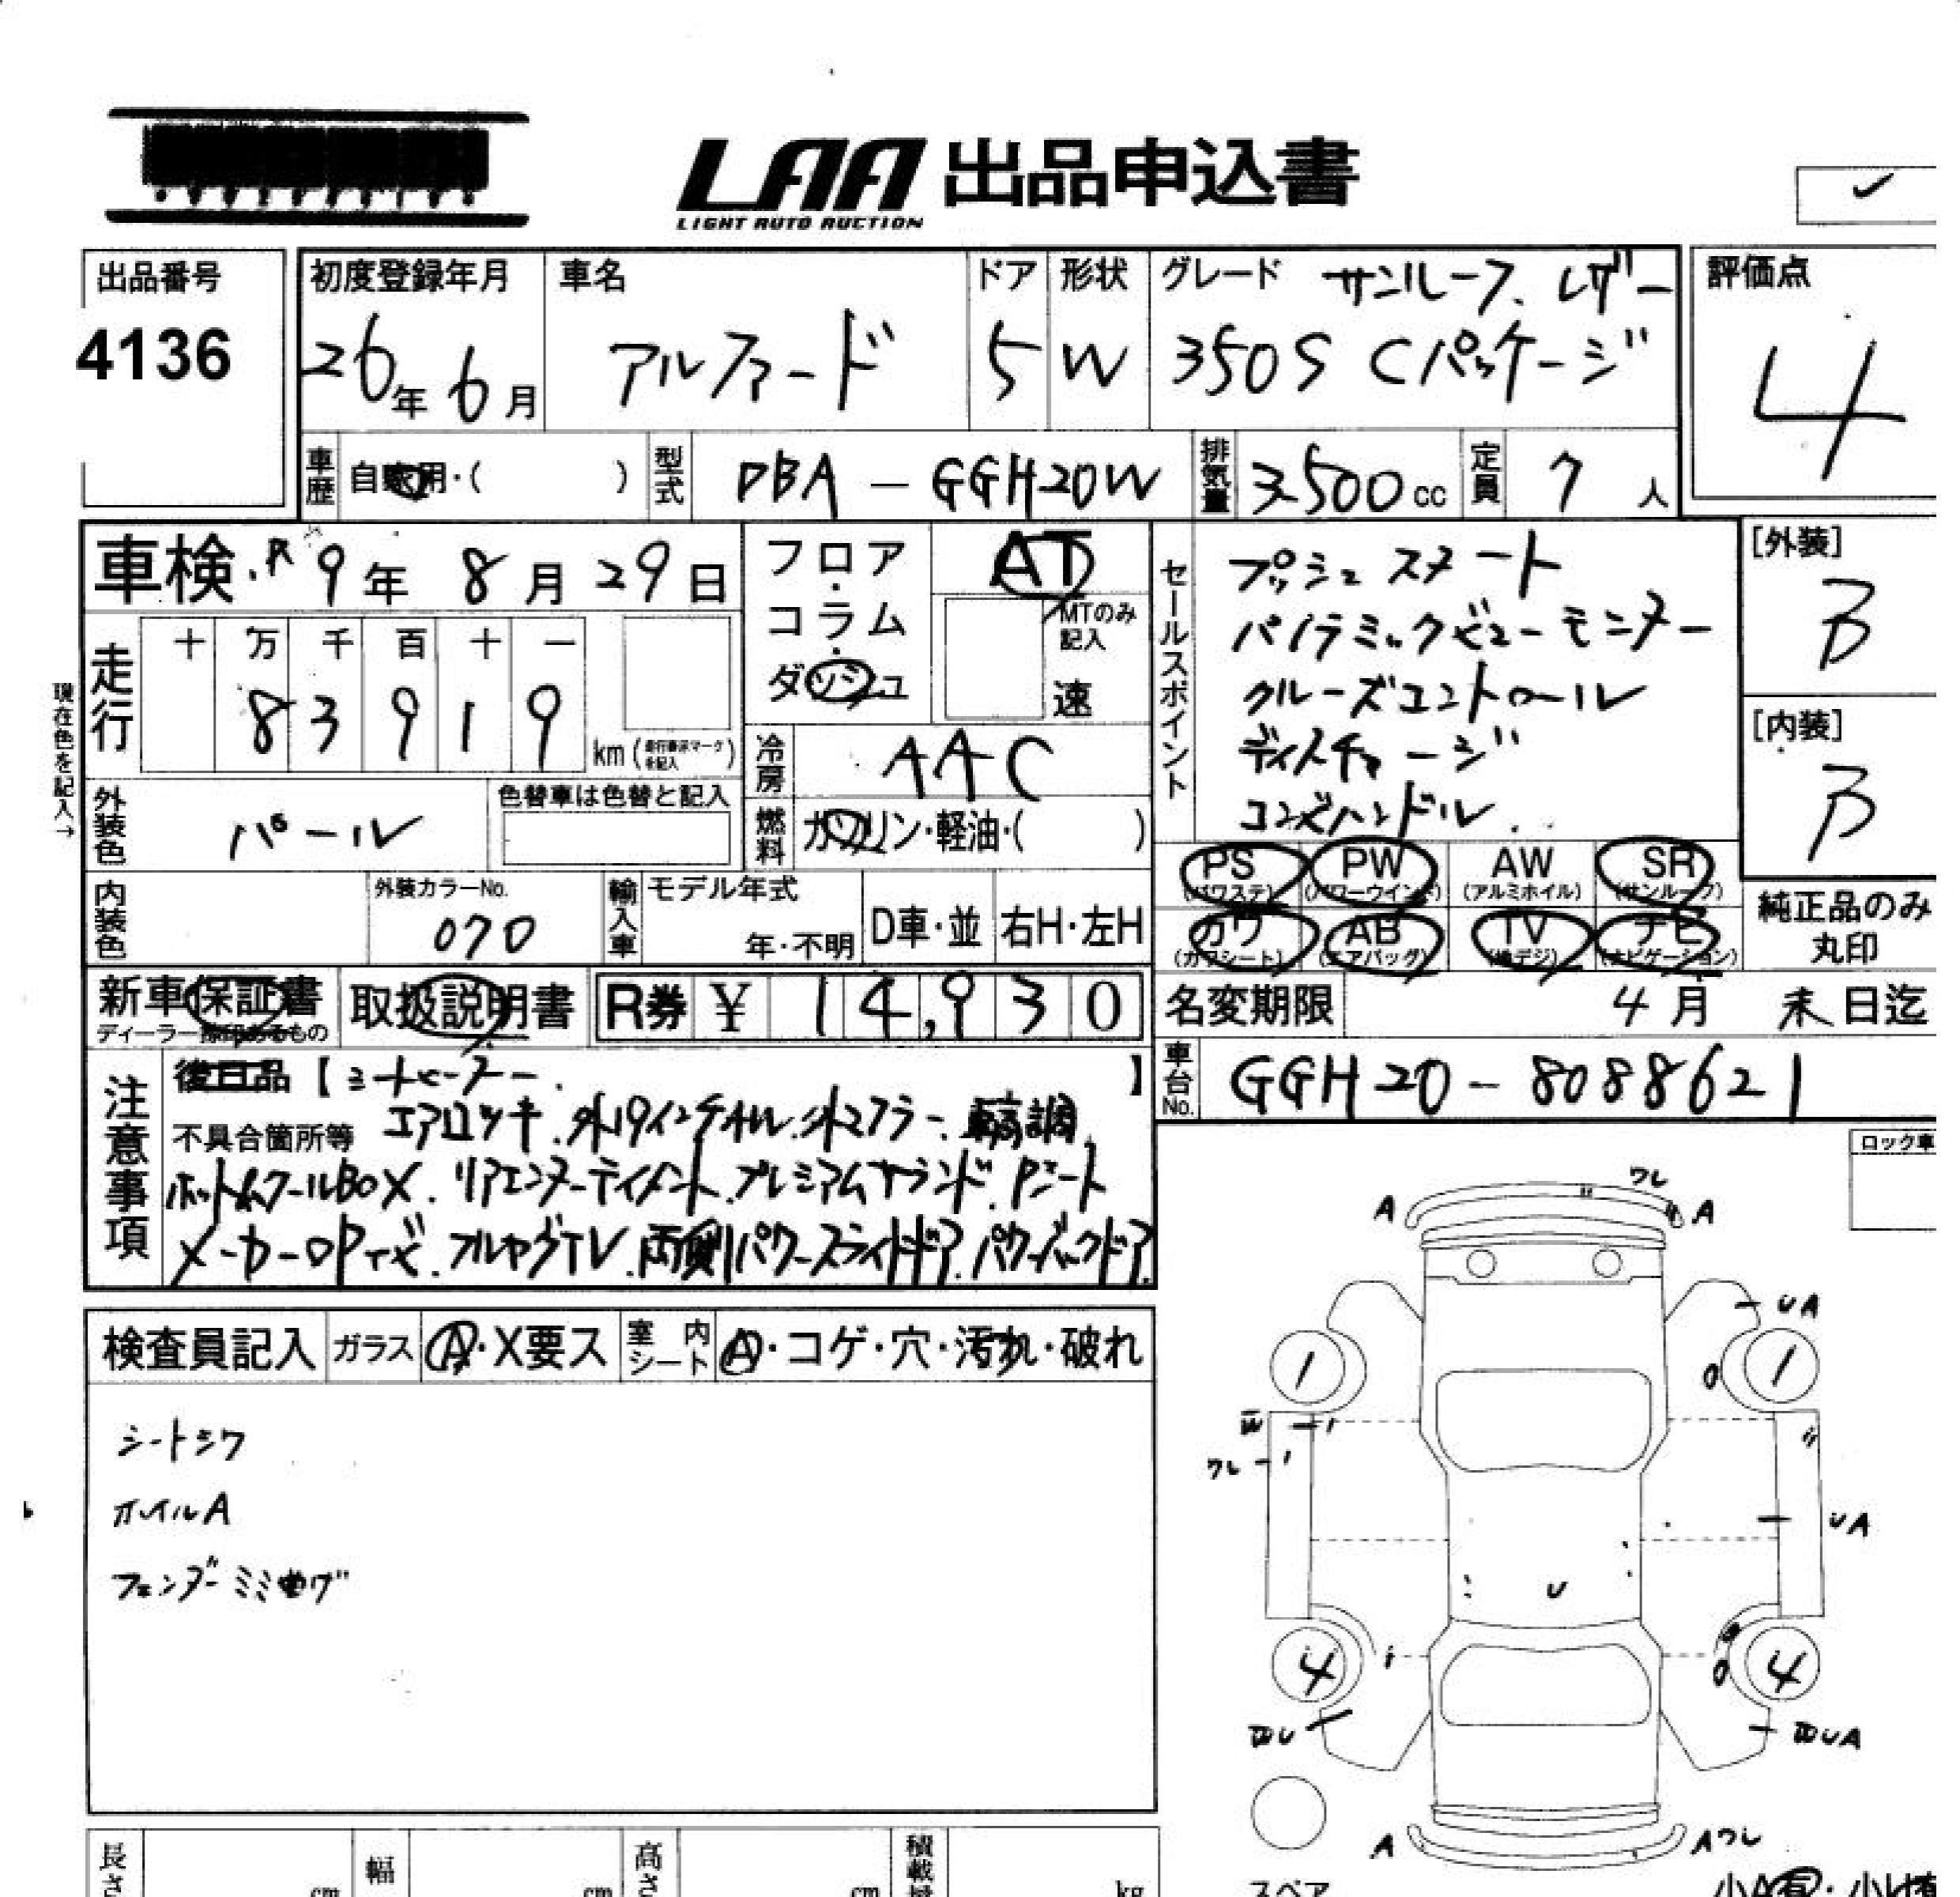 LAA 出品申込書
LIGHT AUTO AUCTION
出品番号
4136
初度登録年月
26年 6月
車名
アルファード
ドア
5
形状
W
グレード サンルーフ、レザー
350S Cパッケージ
評価点
4
車歴 自家用・( )
型式 DBA - GGH20W
排気量 3500cc
定員 7人
車検 R 9年 8月 29日
フロア・コラム・ダッシュ
AT
MTのみ記入
速
セールスポイント
プッシュスタート
パノラミックビューモニター
クルーズコントロール
ディスチャージ
コンビハンドル
[外装]
B
[内装]
B
現在色を記入→
走行
十 万 千 百 十 一
8 3 9 1 9
km (走行要示マークを記入)
冷房 AAC
外装色 パール
色替車は色替と記入
燃料 ガソリン・軽油・( )
内装色
外装カラーNo.
070
輸入車
モデル年式
年・不明
D車・並
右H・左H
PS (パワステ)
PW (パワーウインド)
AW (アルミホイル)
SR (サンルーフ)
カワ (カワシート)
AB (エアバッグ)
TV (地デジ)
ナビ (ナビゲーション)
純正品のみ
丸印
新車保証書
ディーラー捺印あるもの
取扱説明書
R券 ¥ 14,930
名変期限 4月 末日迄
注意事項
後日品【シートヒーター 】
不具合箇所等 エアロツキ、外19インチホイル、外マフラー、車高調
ホット&クールBOX、リアエンターテイメント、プレミアムサウンド、Pシート
メーカーOPナビ、フルセグTV、両側パワースライドドア、パワーバックドア
車台No. GGH20-8088621
ロック車
検査員記入
ガラス A・X要ス
室内シート A・コゲ・穴・汚れ・破れ
シートシワ
ホイルA
フェンダーミミ曲げ
A
ワレ
A
UA
1
1
ワレ
UA
U
4
4
UA
A
Aワレ
スペア
長さ cm
幅 cm
高さ cm
kg